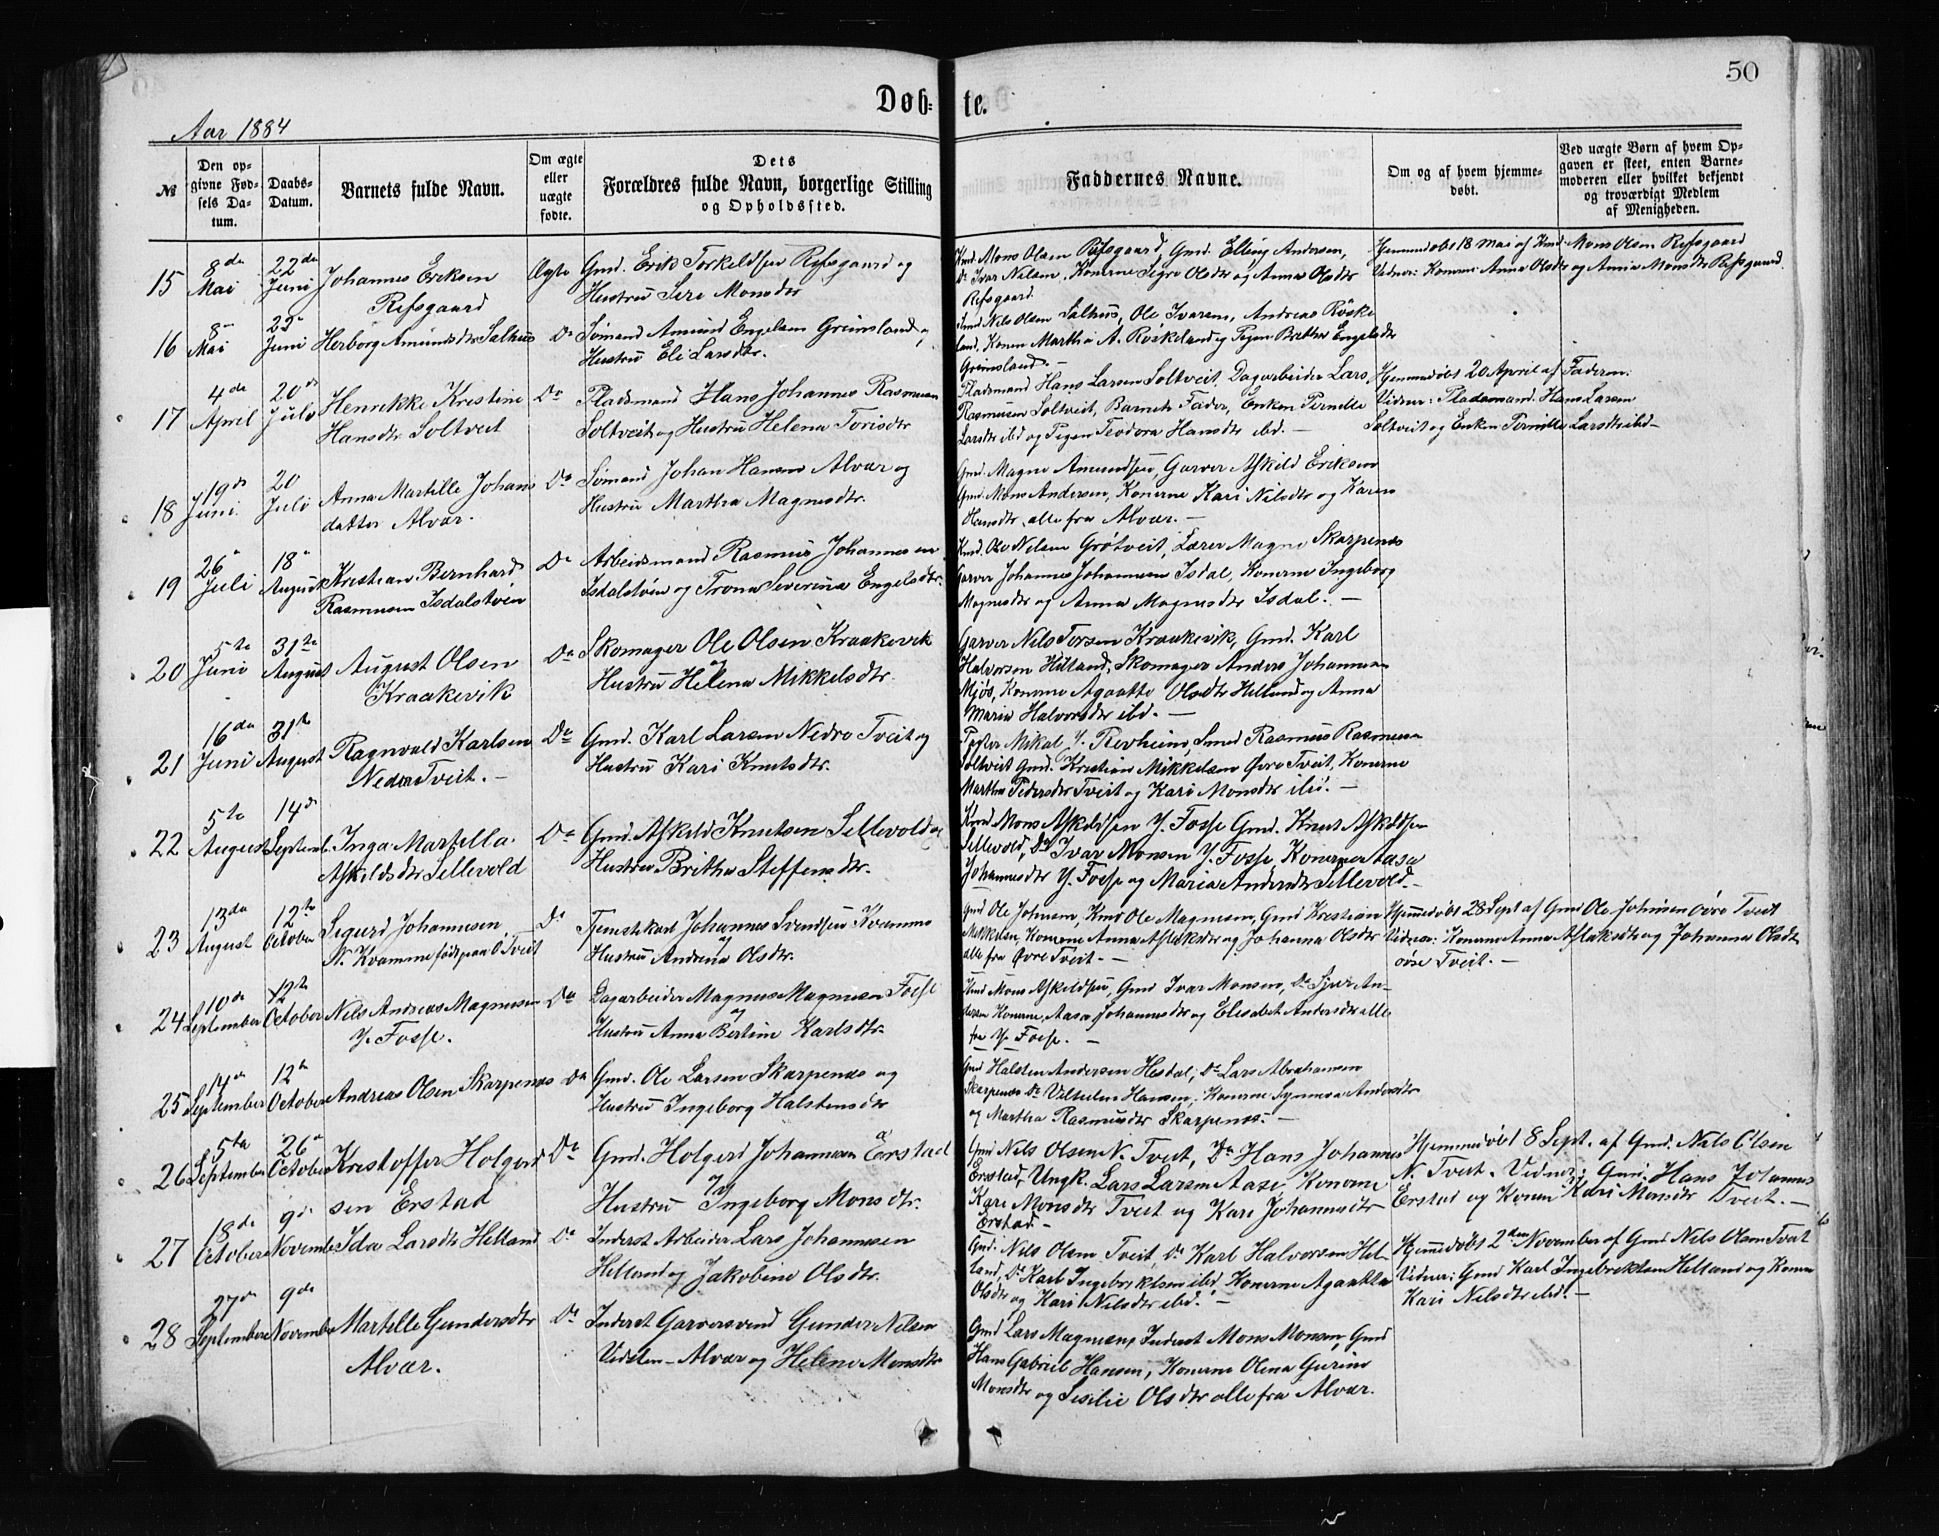 50
Døb- te.
Aar 1884
№
Den op-
givne Fød-
sels Da-
tum.
Daabs-
Datum.
Barnets fulde Navn.
Om ægte
eller
uægte
fødte.
Dets
Forældres fulde Navn, borgerlige Stilling
og Opholdssted.
Faddernes Navne.
Om og af hvem hjemme-
døbt.
Ved uægte Børn af hvem Op-
gaven er skeet, enten Barne-
moderen eller hvilket bekjendt
og troværdigt Medlem
af Menigheden.
15
8de
Mai
22de
Juni
Johannes Eriksen
Refsgaard
Ægte
Gmd. Erik Torkildsen Refsgaard og
Hustru Siri Monsdtr
Kmd. Mons Olsen Refsgaard, Gmd. Elling Andersen,
Do Ivar Nilsen, Konerne Sigre Olsdtr og Anna Olsdtr
Refsgaard.
Hjemmedøbt 18 Mai af Kmd. Mons Olsen Refsgaard
Vidner: Konen Anna Olsdtr og Anna Monsdtr Refsgaard.
16
8de
Mai
Juni
Herborg Amundsdtr Salhus
Do
Sømand Amund Engelsen Grimsland og
Hustru Eli Larsdtr.
Nils Olsen Salhus, Ole Ivarsen, Andreas Röske
land, Konen Martha A. Röskeland og Pigen Brithe Engelsdtr
Grimsland.
17
4de
April
20de
Juli
Henrikke Kristine
Hansdtr Soltveit
Do
Pladsmand Hans Johannes Rasmusen
Soltveit og Hustru Helena Torisdtr
Pladsmand Hans Larsen Soltveit, Dagarbeider Lars
Rasmusen Soltveit, Barnets Fader, Enken Pernille
Larsdtr ibd og Pigen Teodora Hansdtr ibd. —
Hjemmedøbt 20 April af Faderen:
Vidner: Pladsmand Hans Larsen
Soltveit og Enken Pernille Larsdtr ibd —
18
19de
Juni
20
Juli
Anna Martille Johans
datter Alvær.
Do
Sømand Johan Hansen Alvær og
Hustru Martha Magnesdtr.
Gmd. Magne Amundsen, Garver Askild Eriksen
Gmd. Mons Andersen, Konerne Kari Nilsdtr og Karen
Hansdtr, alle fra Alvær. —
19
26
Juli
18
August
Kristian Bernhard
Rasmusen Isdalstøen
Do
Arbeidsmand Rasmus Johannesen
Isdalstøen og Trona Severine Engelsdtr.
Kmd. Ole Nilsen Grøtveit, Lærer Magne Skarpenes
Garver Johannes Johannesen Isdal, Konerne Ingeborg
Magnesdtr og Anna Magnesdtr Isdal. —
20
5te
Juni
31te
August
August Olsen
Kraakevik
Do
Skomager Ole Olsen Kraakevik
og
Hustru Helena Mikkelsdtr.
Garver Nils Torsen Kraakevik, Gmd. Karl
Halvorsen Helland, Skomager Anders Johannesen
Mjøs, Konerne Agaatte Olsdtr Helland og Anna
Maria Halvorsdtr ibd. —
21
16de
Juni
31te
August
Ragnvald Karlsen
Nedre Tveit. —
Do
Gmd. Karl Larsen Nedre Tveit og
Hustru Kari Knutsdtr.
Mikal Y. Revheim, Smed Rasmus Rasmusen
Soltveit Gmd. Kristian Mikkelsen Øvre Tveit, Konerne
Martha Pedersdtr Tveit og Kari Monsdtr ibd. —
22
5te
August
14de
Septemb.
Inga Martella
Askildsdtr Sellevold
Do
Gmd. Askild Knutsen Sellevold og
Hustru Britha Steffensdtr.
Kmd Mons Askildsen Y. Fosse Gmd. Knut Askildsen
Sellevold, Do Ivar Monsen Y. Fosse, Konerne Aasa
Johannesdtr Y. Fosse og Maria Andersdtr Sellevold. —
23
13de
August
12te
October
Sigurd Johannesen
N. Kvamme født paa Ö Tveit
Do
Tjenestekarl Johannes Svendsen Kvamme
og
Hustru Andrina Olsdtr.
Gmd Ole Johnsen, Kmd Ole Magnesen, Gmd Kristian
Mikkelsen, Konerne Anna Aslaksdtr og Johanna Olsdtr
alle fra Øvre Tveit. —
Hjemmedøbt 28 Sept af Gmd Ole Johnsen Øvre Tveit
Vidner: Konerne Anna Aslaksdtr og Johanna Olsdtr
øvre Tveit. —
24
10de
September
12te
October
Nils Andreas Magnusen
Y. Fosse.
Do
Dagarbeider Magnus Magnusen Fosse
og
Hustru Anna Bertine Karlsdtr.
Kmd Mons Askildsen, Gmd Ivar Monsen, Do Sjur An-
dersen Konerne, Aasa Johannesdtr og Elisabet Andersdtr alle
fra Y. Fosse. —
25
14de
September
12te
October
Andreas Olsen Skarpenes
Do
Gmd. Ole Larsen Skarpenes og
Hustru Ingeborg Halstensdtr
Gmd Halsten Andersen Hesdal, Do Lars Abrahamsen
Skarpenes Do Vilhelm Hansen, Konerne Synneva Andersdtr
og Martha Rasmusdtr Skarpenes. —
26
5te
September
26
October
Kristoffer Holgerd
sen Erstad
Do
Gmd. Holgerd Johannesen Erstad
og
Hustru Ingeborg Monsdtr.
Gmd Nils Olsen N. Tveit, Do Hans Johannes
Erstad, Ungk. Lars Larsen Aase Konerne
Kari Monsdtr Tveit og Kari Johannesdtr
Erstad —
Hjemmedøbt 8 Sept. af Gmd. Nils Olsen
N. Tveit. Vidner: Gmd: Hans Johannes
Erstad og Konen Kari Monsdtr Tveit. —
27
18de
October
9de
Novembr
Ida Larsdtr Helland
Do
Inderst Arbeider Lars Johannesen
Helland og Jakobine Olsdtr.
Gmd: Nils Olsen Tveit, Do Karl Halvorsen Hel-
land, Do Karl Ingebriktsen ibd, Konerne Agaathe
Olsdtr og Kari Nilsdtr ibd. —
Hjemmedøbt 2den November af Gmd Nils Olsen Tveit
Vidner: Gmd Karl Ingebriktsen Helland og Konen
Kari Nilsdtr ibd. —
28
27de
September
9de
Novembr
Martille Gundersdtr
Alvær.
Do
Inderst Garversvend Gunder Nilsen
Vidsten - Alvær og Helene Monsdtr
Gmd Lars Magnesen, Inderst Mons Monsen, Gmd
Hans Gabriel Hansen, Konerne Olena Gurine
Monsdtr og Sesilie Olsdtr alle fra Alvær.